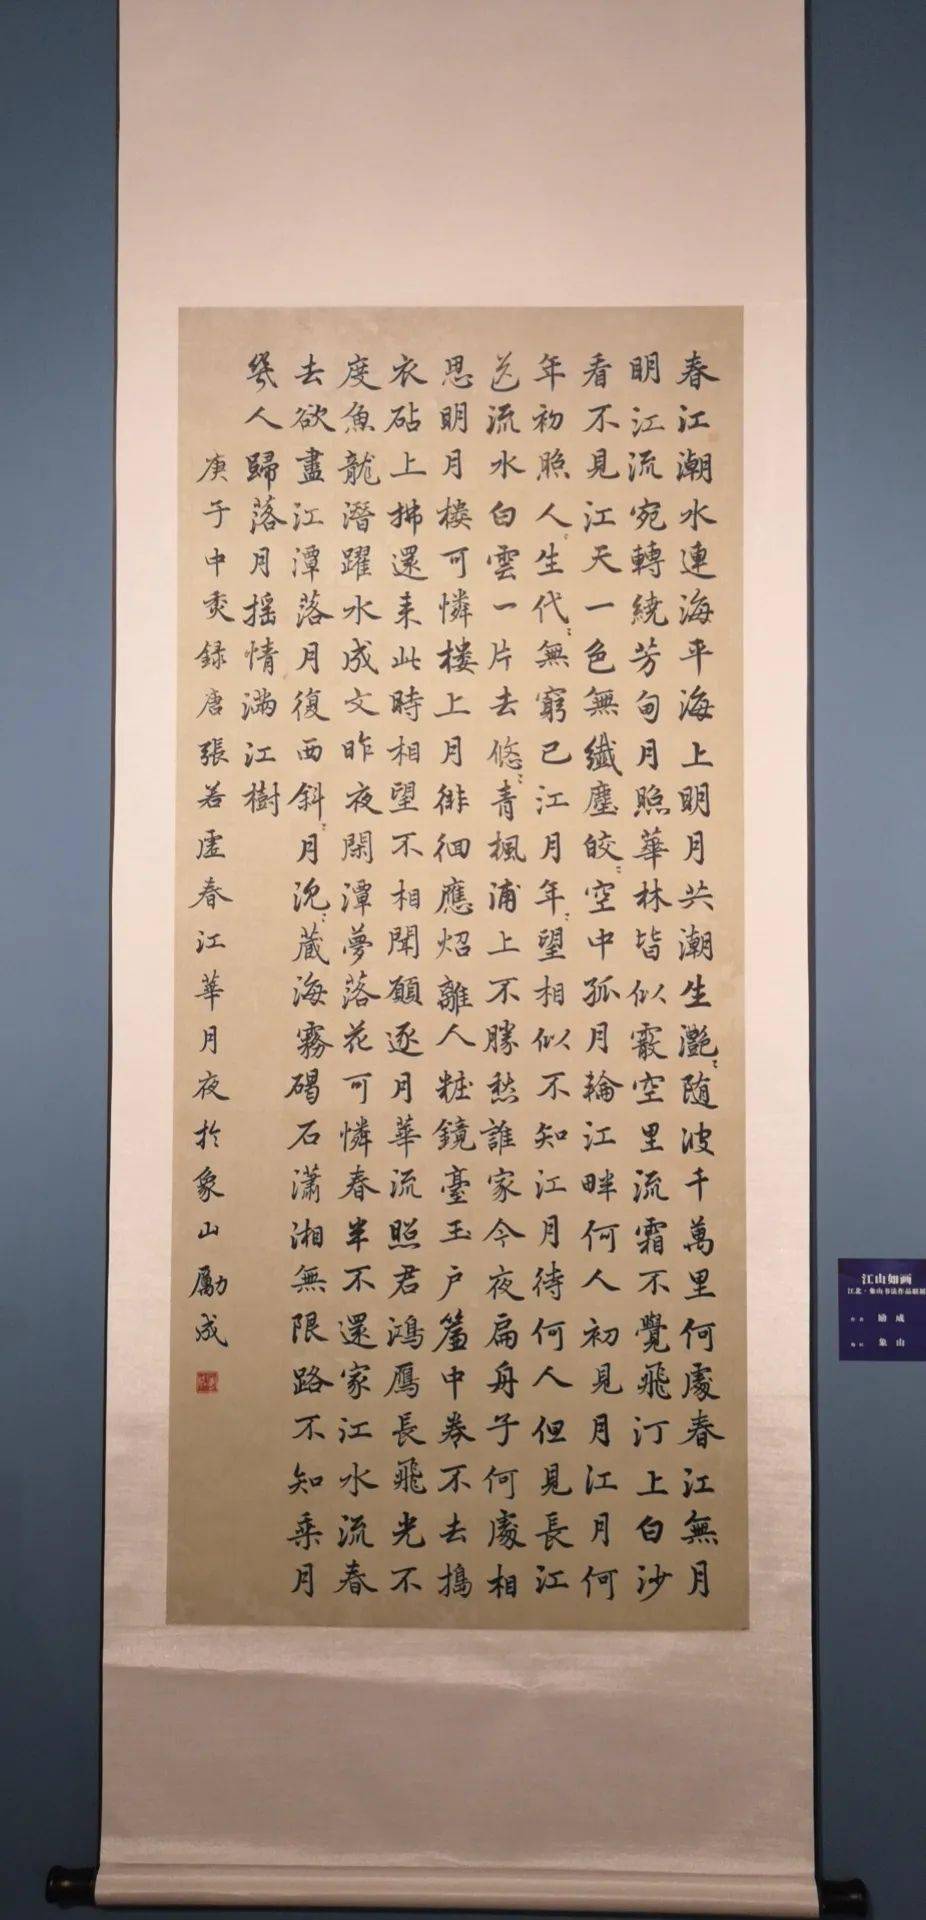 春江潮水連海平海上明月共潮生灔〻随波千萬里何處春江無月
明江流宛轉繞芳甸月照華林皆似霰空里流霜不覺飛汀上白沙
看不見江天一色無纖塵皎〻空中孤月輪江畔何人初見月江月何
年初照人〻生代〻無窮已江月年〻望相似不知江月待何人但見長江
送流水白雲一片去悠〻青楓浦上不勝愁誰家今夜扁舟子何處相
思明月樓可憐樓上月徘徊應炤離人粧鏡臺玉户簾中卷不去搗
衣砧上拂還来此時相望不相聞願逐月華流照君鴻鴈長飛光不
度魚龍潛躍水成文昨夜閑潭夢落花可憐春半不還家江水流春
去欲盡江潭落月復西斜〻月沉〻藏海霧碣石瀟湘無限路不知乘月
幾人歸落月摇情滿江樹
庚子中秌録唐張若虚春江華月夜於象山勵成
江山如画
江北·象山书法作品联展
励成
象山